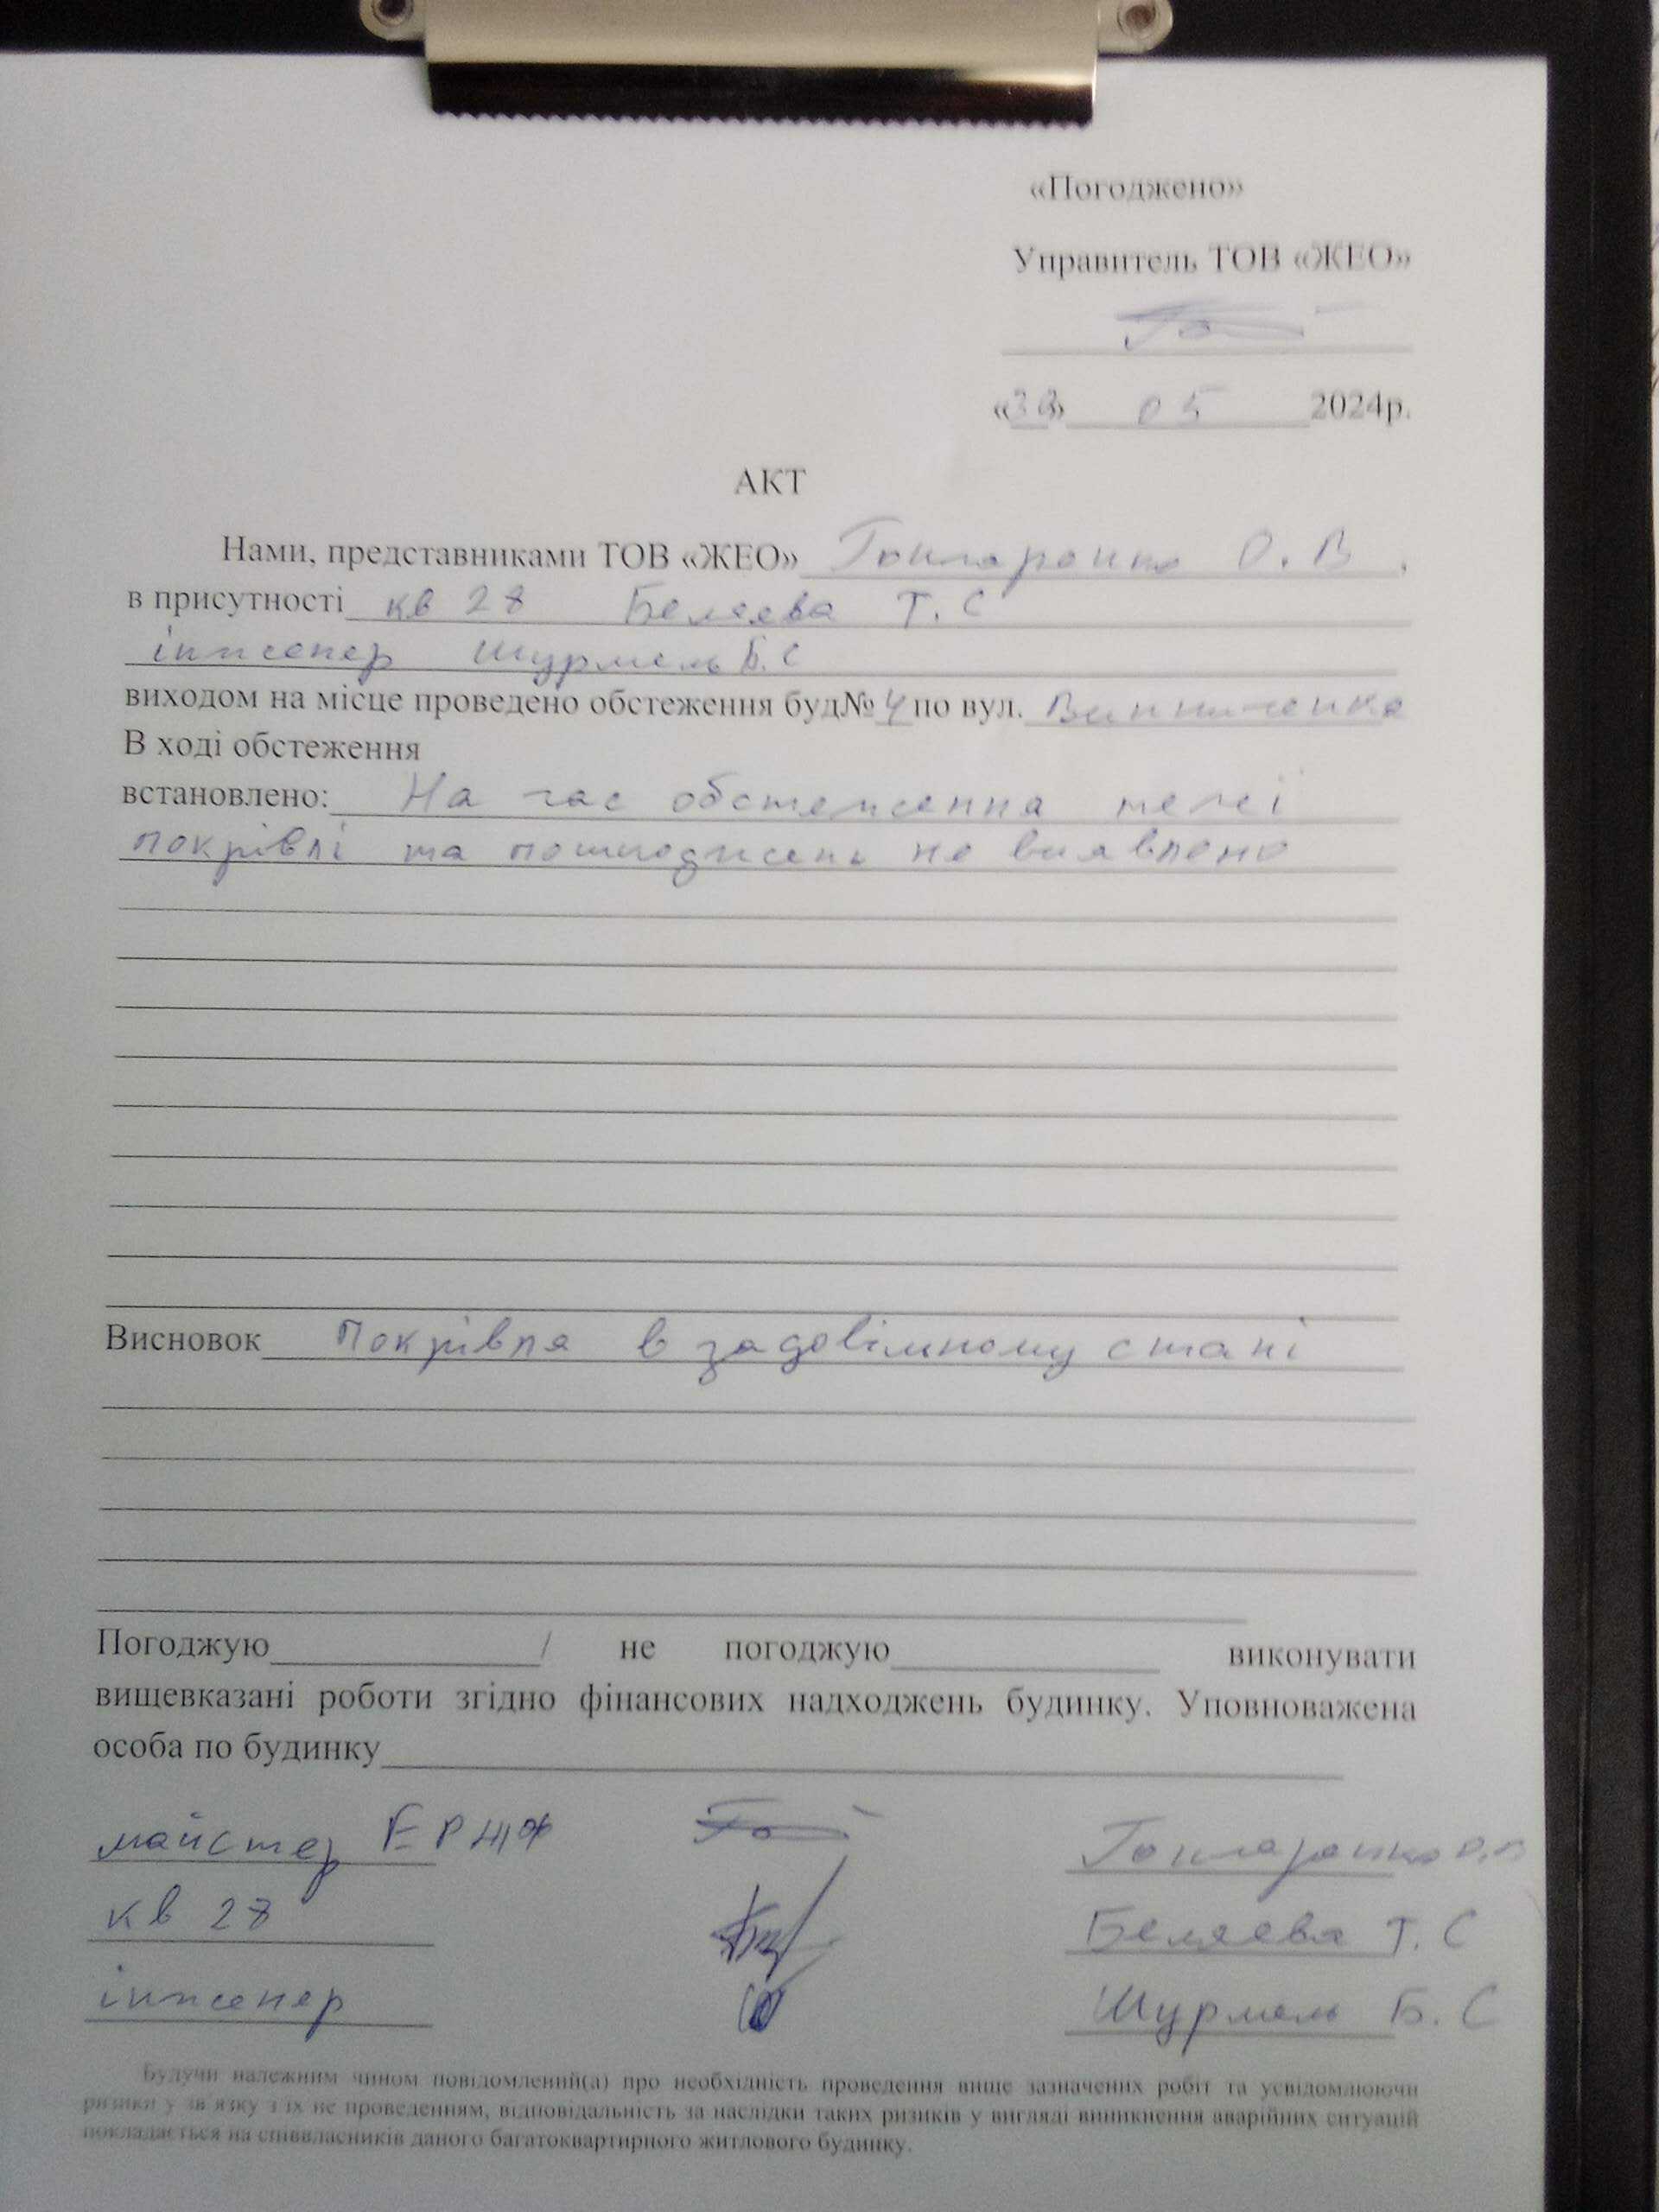 «Погоджено»
Управитель ТОВ «ЖЕО»
«30» 05 2024р.
АКТ
Нами, представниками ТОВ «ЖЕО» Гончаренко О.В.
в присутності кв 28 Беляева Т.С
інженер Шурмель Б.С
виходом на місце проведено обстеження буд№ 4 по вул. Винниченка
В ході обстеження
встановлено: На час обстеження течі
покрівлі та пошкоджень не виявлено
Висновок Покрівля в задовільному стані
Погоджую / не погоджую виконувати
вищевказані роботи згідно фінансових надходжень будинку. Уповноважена
особа по будинку
майстер ЕРЖФ Гончаренко О.В
кв 28 Беляева Т.С
інженер Шурмель Б.С
Будучи належним чином повідомлений(а) про необхідність проведення вище зазначених робіт та усвідомлюючи
ризики у зв'язку з їх не проведенням, відповідальність за наслідки таких ризиків у вигляді виникнення аварійних ситуацій
покладається на співвласників даного багатоквартирного житлового будинку.